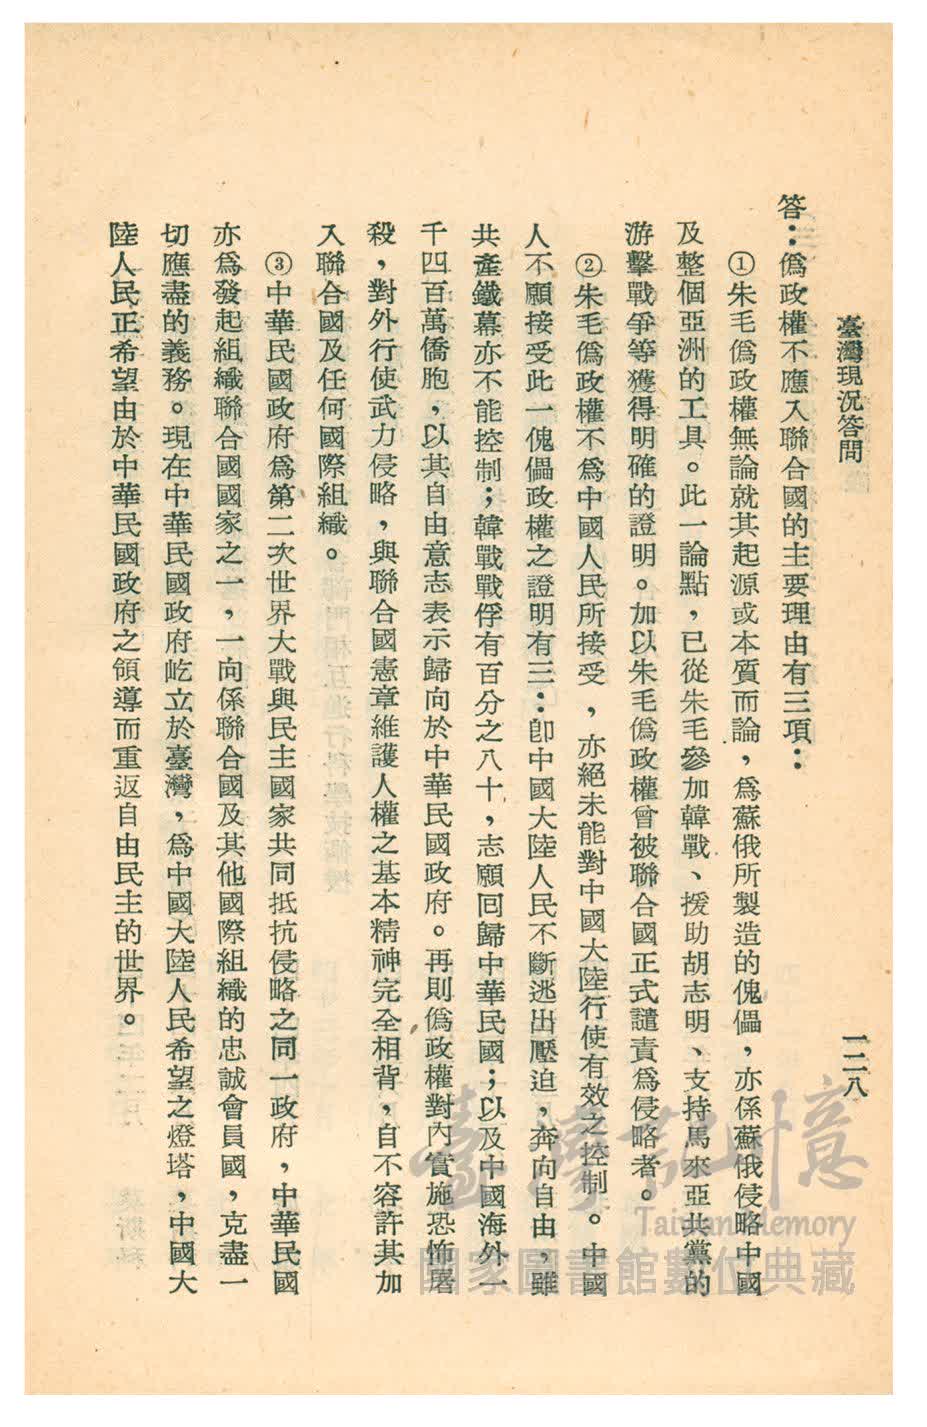 臺灣現況答問
一二八
答：僞政權不應入聯合國的主要理由有三項：
①朱毛僞政權無論就其起源或本質而論，爲蘇俄所製造的傀儡，亦係蘇俄侵略中國
及整個亞洲的工具。此一論點，已從朱毛參加韓戰、援助胡志明、支持馬來亞共黨的
游擊戰爭等獲得明確的證明。加以朱毛僞政權曾被聯合國正式譴責爲侵略者。
②朱毛僞政權不爲中國人民所接受，亦絕未能對中國大陸行使有效之控制。中國
人不願接受此一傀儡政權之證明有三：卽中國大陸人民不斷逃出壓迫，奔向自由，雖
共產鐵幕亦不能控制；韓戰戰俘有百分之八十，志願回歸中華民國；以及中國海外一
千四百萬僑胞，以其自由意志表示歸向於中華民國政府。再則僞政權對內實施恐怖屠
殺，對外行使武力侵略，與聯合國憲章維護人權之基本精神完全相背，自不容許其加
入聯合國及任何國際組織。
③中華民國政府爲第二次世界大戰與民主國家共同抵抗侵略之同一政府，中華民國
亦爲發起組織聯合國國家之一，一向係聯合國及其他國際組織的忠誠會員國，克盡一
切應盡的義務。現在中華民國政府屹立於臺灣，爲中國大陸人民希望之燈塔，中國大
陸人民正希望由於中華民國政府之領導而重返自由民主的世界。
臺灣記憶
Taiwan Memory
國家圖書館數位典藏